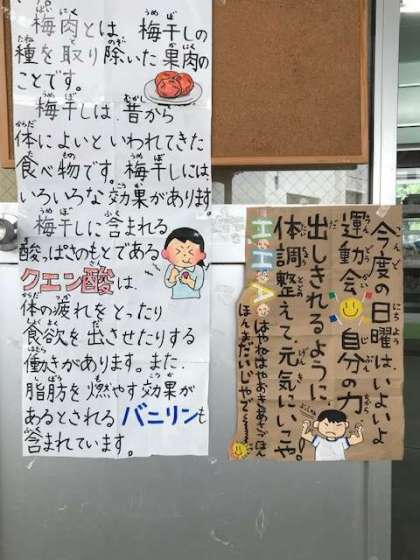 梅肉とは、梅干しの
種を取り除いた果肉の
ことです。
梅干しは、昔から
体によいといわれてきた
食べ物です。梅干しには、
いろいろな効果があります。
梅干しに含まれる
酸っぱさのもとである
クエン酸は、
体の疲れをとったり
食欲を出させたりする
働きがあります。また、
脂肪を燃やす効果が
あるとされるバニリンも
含まれています。
今度の日曜は、いよいよ
運動会。自分の力
出しきれるように、
体調整えて元気にいこや。
H・H・A・
はやねはやおきあさごはん
ほんまだいじやで〜